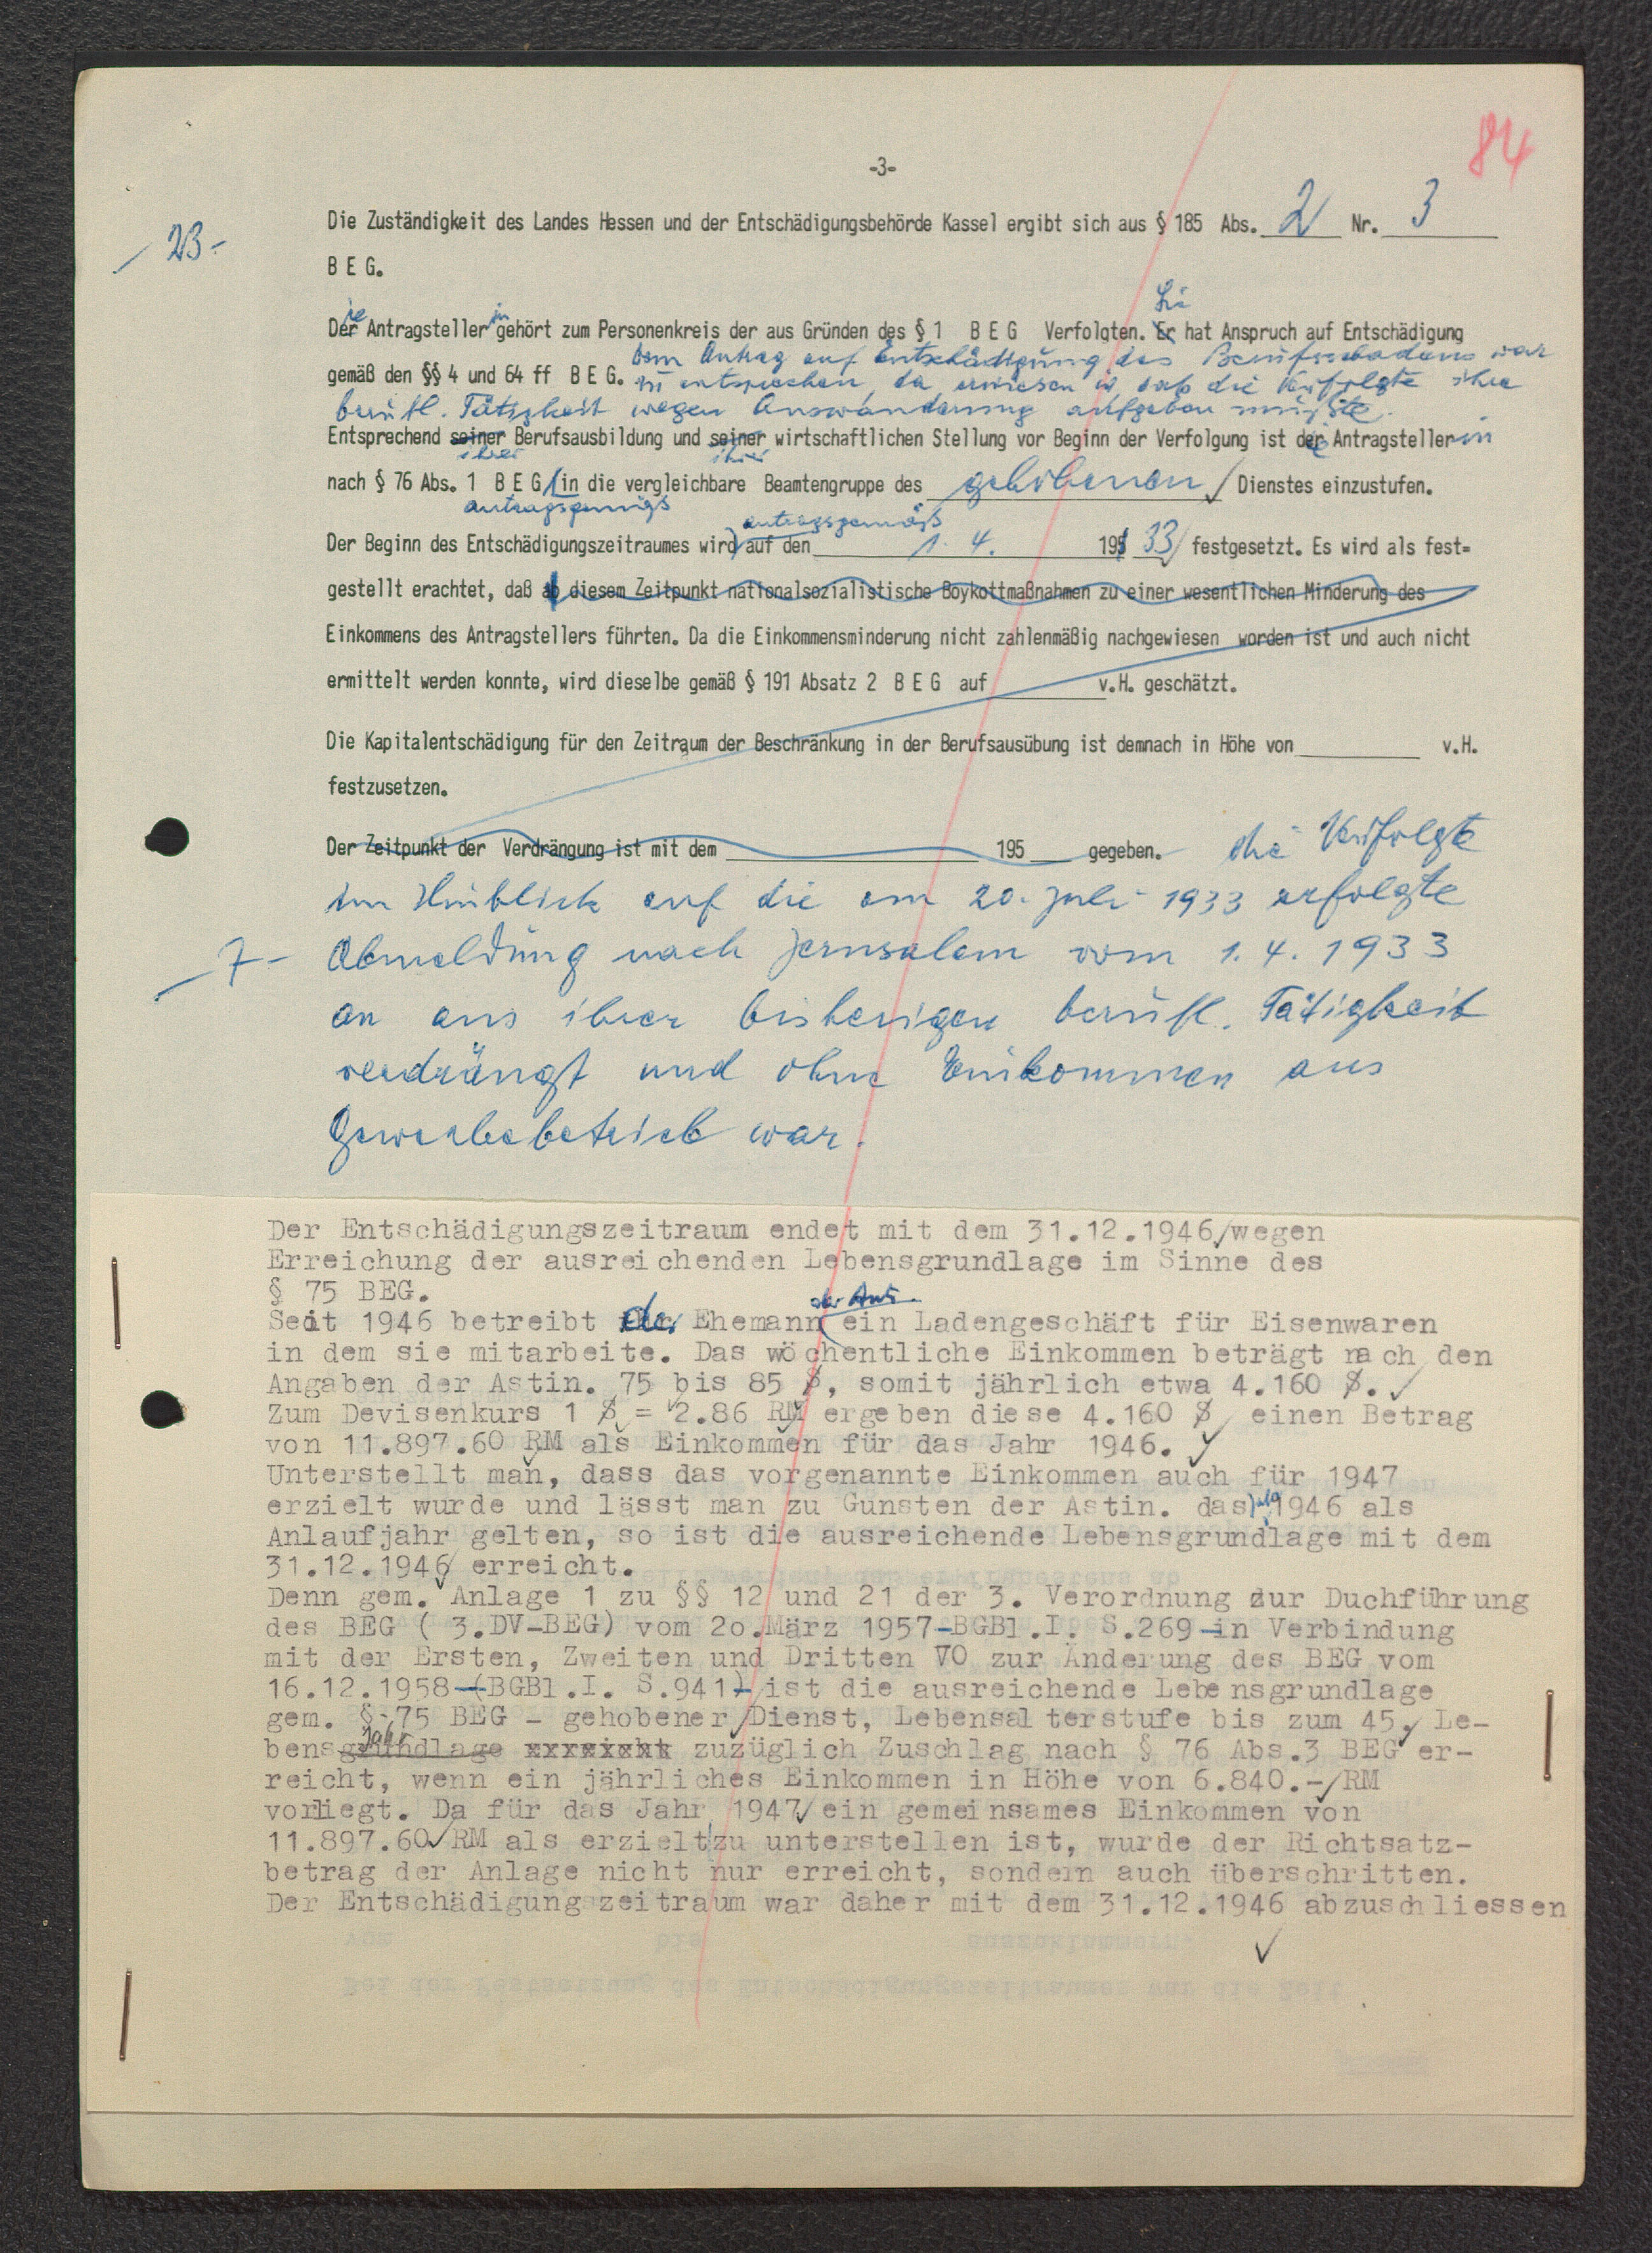 84
-3-
Die Zuständigkeit des Landes Hessen und der Entschädigungsbehörde Kassel ergibt sich aus § 185 Abs. 2 Nr. 3
23-
B E G.
Sie
Der ie Antragsteller in gehört zum Personenkreis der aus Gründen des § 1 B E G Verfolgten. Er hat Anspruch auf Entschädigung
Dem Antrag auf Entschädigung des Berufsschadens war
gemäß den §§ 4 und 64 ff B E G. zu entsprechen, da erwiesen ist daß die Verfolgte ihre
berufl. Tätigkeit wegen Auswanderung aufgeben mußte.
Entsprechend seiner Berufsausbildung und seiner wirtschaftlichen Stellung vor Beginn der Verfolgung ist der ie Antragstellerin
ihrer ihrer
nach § 76 Abs. 1 B E G in die vergleichbare Beamtengruppe des gehobenen Dienstes einzustufen.
antragsgemäß
antragsgemäß
Der Beginn des Entschädigungszeitraumes wird auf den 1. 4. 195 33 festgesetzt. Es wird als fest=
gestellt erachtet, daß ab diesem Zeitpunkt nationalsozialistische Boykottmaßnahmen zu einer wesentlichen Minderung des
Einkommens des Antragstellers führten. Da die Einkommensminderung nicht zahlenmäßig nachgewiesen worden ist und auch nicht
ermittelt werden konnte, wird dieselbe gemäß § 191 Absatz 2 B E G auf v.H. geschätzt.
Die Kapitalentschädigung für den Zeitraum der Beschränkung in der Berufsausübung ist demnach in Höhe von v.H.
festzusetzen.
Der Zeitpunkt der Verdrängung ist mit dem 195 gegeben. die Verfolgte
im Hinblick auf die am 20. Juli 1933 erfolgte
7- Abmeldung nach Jerusalem vom 1. 4. 1933
an aus ihrer bisherigen berufl. Tätigkeit
verdrängt und ohne Einkommen aus
Gewerbebetrieb war.
Der Entschädigungszeitraum endet mit dem 31.12.1946 wegen
Erreichung der ausreichenden Lebensgrundlage im Sinne des
§ 75 BEG.
der Ast.
Seit 1946 betreibt der Ehemann ein Ladengeschäft für Eisenwaren
in dem sie mitarbeite. Das wöchentliche Einkommen beträgt nach den
Angaben der Astin. 75 bis 85 $, somit jährlich etwa 4.160 $.
Zum Devisenkurs 1 $ = 2.86 RM ergeben diese 4.160 $ einen Betrag
von 11.897.60 RM als Einkommen für das Jahr 1946.
Unterstellt man, dass das vorgenannte Einkommen auch für 1947
erzielt wurde und lässt man zu Gunsten der Astin. das Jahr 1946 als
Anlaufjahr gelten, so ist die ausreichende Lebensgrundlage mit dem
31.12.1946 erreicht.
Denn gem. Anlage 1 zu §§ 12 und 21 der 3. Verordnung zur Duchführung
des BEG ( 3.DV-BEG) vom 2o.März 1957-BGBl.I. S.269-in Verbindung
mit der Ersten, Zweiten und Dritten VO zur Änderung des BEG vom
16.12.1958-(BGBl.I. S.941)-ist die ausreichende Lebensgrundlage
gem. § 75 BEG - gehobener Dienst, Lebensalterstufe bis zum 45. Le-
Jahr
bensgrundlage xxxxxxxx zuzüglich Zuschlag nach § 76 Abs.3 BEG er-
reicht, wenn ein jährliches Einkommen in Höhe von 6.840.- RM
vorliegt. Da für das Jahr 1947 ein gemeinsames Einkommen von
11.897.60 RM als erzielt zu unterstellen ist, wurde der Richtsatz-
betrag der Anlage nicht nur erreicht, sondern auch überschritten.
Der Entschädigungszeitraum war daher mit dem 31.12.1946 abzuschliessen